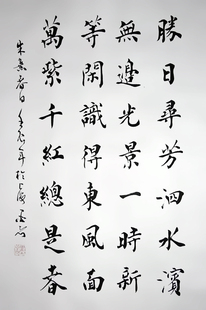 勝日尋芳泗水濱
無邊光景一時新
等閑識得東風面
萬紫千紅總是春
朱熹春日